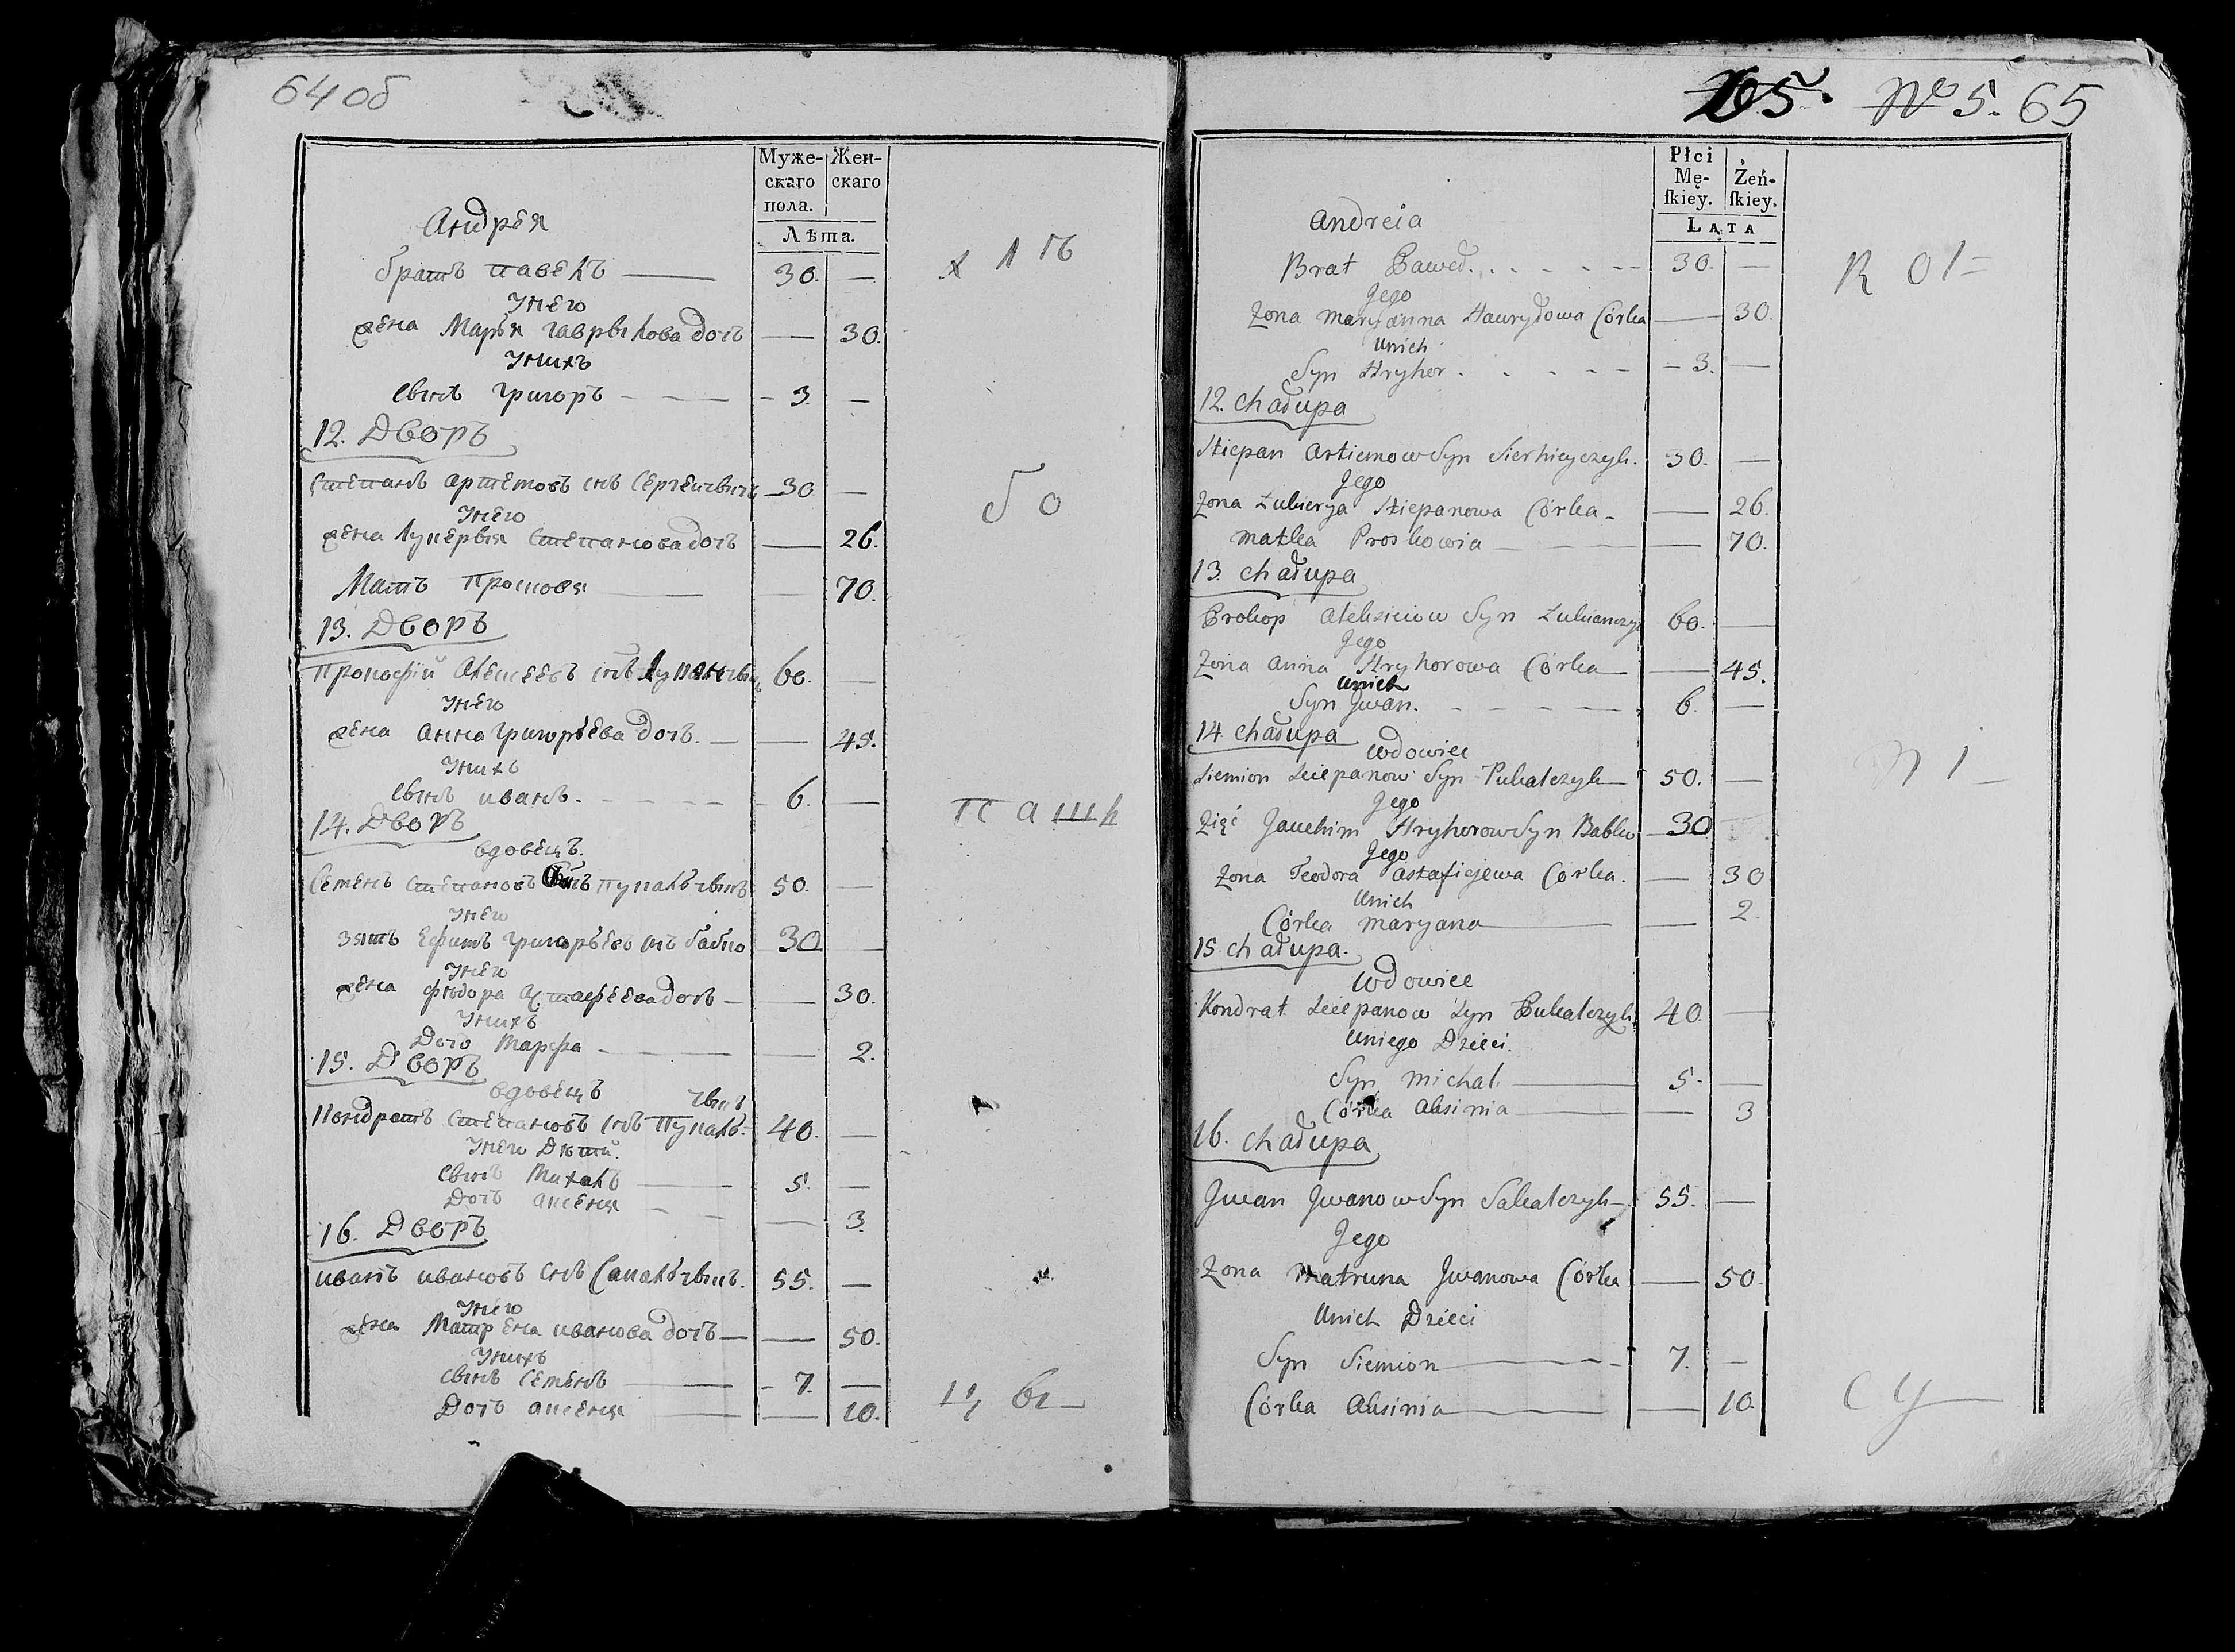 64 об
Муже-
скаго
пола.
Жен-
скаго
Лѣта.
Андрея
братъ павелъ — 30. —
Унего
жена Марья гаврылова дочъ — 30.
Унихъ
сынъ григоръ — 3. —
12. Дворъ
Степанъ артемовъ снъ Сергеичыкъ 30 —
Унего
жена Лукерыя Степанова дочъ — 26.
Матъ Просковя — 70.
13. Дворъ
Прокофiй Алексеевъ снъ 60. —
Унего
жена анна григорьева дочъ. — 45.
Унихъ
сынъ иванъ. 6. —
14. Дворъ
вдовецъ.
Семенъ степановъ снъ пукалъчыкъ 50. —
Унего
зять Ефимъ григорьевъ снъ бабко 30 —
Унего
жена фѣдора астафеева дочъ — 30.
Унихъ
Доч марфа — 2.
15. Дворъ
вдовецъ
чыкъ
Кондратъ степановъ снъ Пукалъ- 40. —
Унего Дѣти.
сынъ михалъ 5. —
Дочъ аксеня — 3.
16. Дворъ
иванъ ивановъ снъ Сакалъчыкъ. 55. —
Унего
жена Матрена иванова дочъ — 50.
Унихъ
сынъ семенъ — 7. —
Дочъ аксеня — 10.
№ 5. 65
Płci
Mę-
skiey.
Żeń-
skiey.
LATA
Andreia
Brat Paweł. 30. —
Jego
Zona maryanna Hawryłowa Córka — 30.
Unich
Syn Hryhor. 3. —
12. chałupa
Stiepan Artiemow Syn Sierhieyczyk. 30. —
Jego
Zona Łukierya Stiepanowa Córka — 26.
matka Proskowia — 70.
13. chałupa
Prokop Aleksieiow Syn 60. —
Jego
Zona Anna Hryhorowa Córka — 45.
Unich
Syn Jwan. 6. —
14. chałupa
Wdowiec
Siemion Sciepanow Syn Pukalczyk — 50. —
Jego
Zięć Jauchim Hryhorow Syn Babko — 30
Jego
Zona Teodora Astafiejewa Córka. — 30
Unich
Córka maryana — 2.
15. chałupa.
Wdowiec
Kondrat Sciepanow Syn Pukalczyk 40. —
Uniego Dzieci.
Syn michał 5. —
Córka Aksinia — 3
16. chałupa
Jwan Jwanow Syn Sakalczyk — 55. —
Jego
Zona matruna Jwanowa Córka — 50.
Unich Dzieci
Syn Siemion — 7. —
Córka Aksinia — 10.